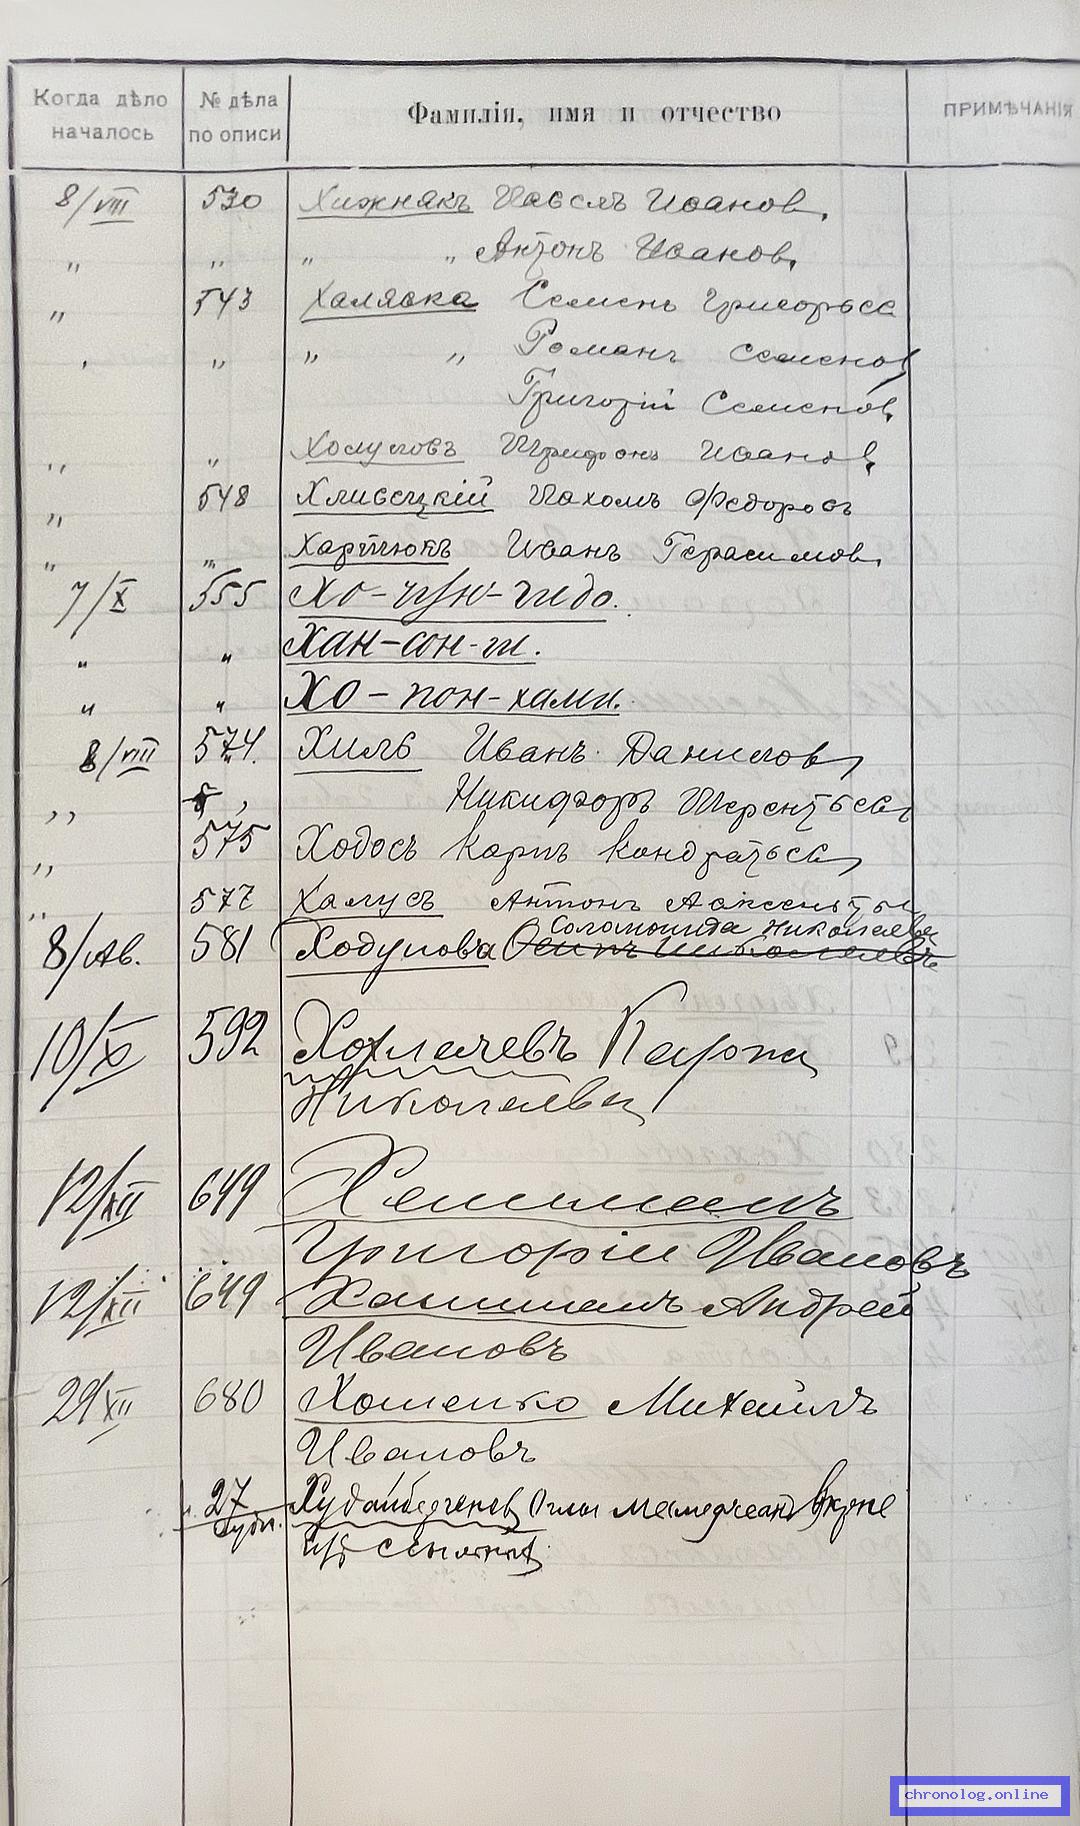 Когда дѣло началось № дѣла по описи Фамилія, имя и отчество ПРИМѢЧАНІЯ
8/VIII 530 Хижнякъ Павелъ Иванов.
„ „ „ „ Антонъ Иванов.
„ 543 Халявка Семенъ Григорьев
„ „ „ „ Романъ Семенов
Григорій Семенов.
„ „ Трифонъ Иванов.
„ 548 Хливецкій Пахомъ Федоровъ
„ „ Харитюкъ Иванъ Герасимов.
7/X 555 Хо-чун-гидо.
„ „ Хан-сон-ги.
„ „ Хо-пон-хами.
8/VIII 574. Хиль Иванъ Данилов
„ Никифоръ Терентьев
„ 575 Ходосъ Карпъ Кондратьев
„ 577 Халусъ Антонъ Авксентьев
8/Ав. 581 Ходунова Соломонида Николаев
Осипъ Николаевъ
10/X 592 Хохлачевъ Карпа
Николаева
12/XII 649
Григорій Ивановъ
12/XII 649 Андрей
Ивановъ
29/XII 680 Хоменко Михаилъ
Ивановъ
27 Оглы
chronolog.online